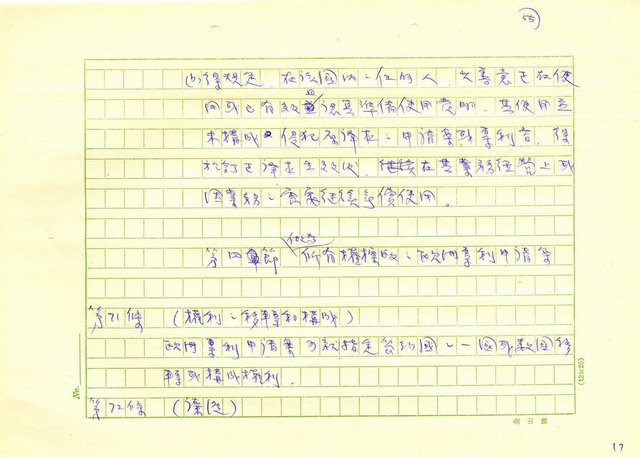 55
(b)得規定，在該國內之任何人，如善意已在使
用或已有效並認真準備使用發明，其使用並
未構成侵犯原譯本之申請案或專利者，得
於訂正譯本生效後，繼續在其業務經營上或
因業務之需要繼續免償使用。
第四節 做為所有權標的之歐洲專利申請案
第71條 (權利之移轉和構成)
歐洲專利申請案可就指定締約國之一國或數國移
轉或構成權利。
第72條 (讓與)
No.
(12×25)
17